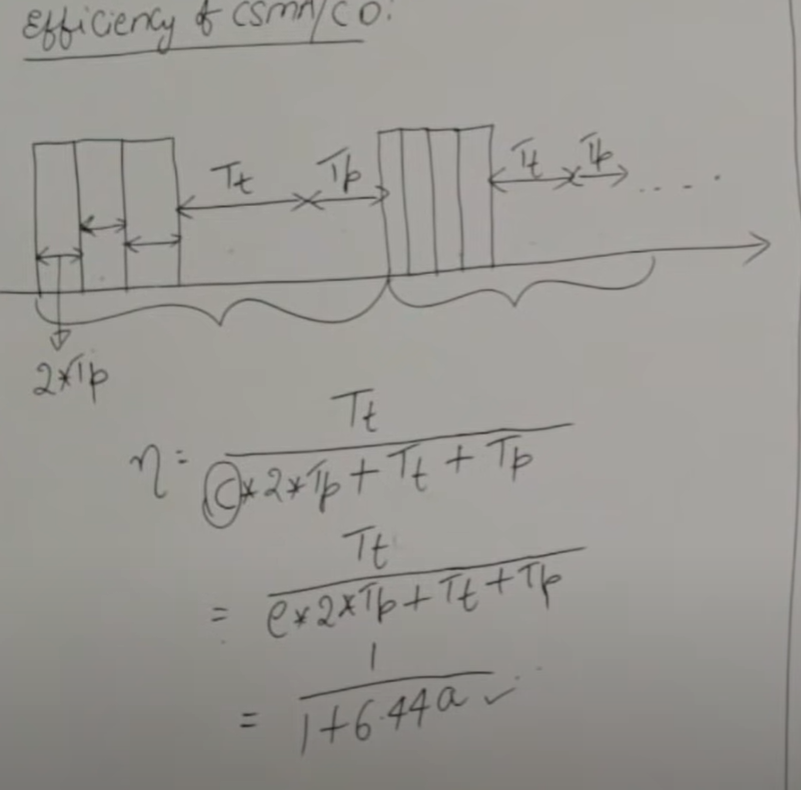 Efficiency of CSMA/CD:
Tt Tp Tt Tp ....
2*Tp
η = Tt / (C*2*Tp + Tt + Tp)
= Tt / (e*2*Tp + Tt + Tp)
= 1 / (1+6.44a) ✓